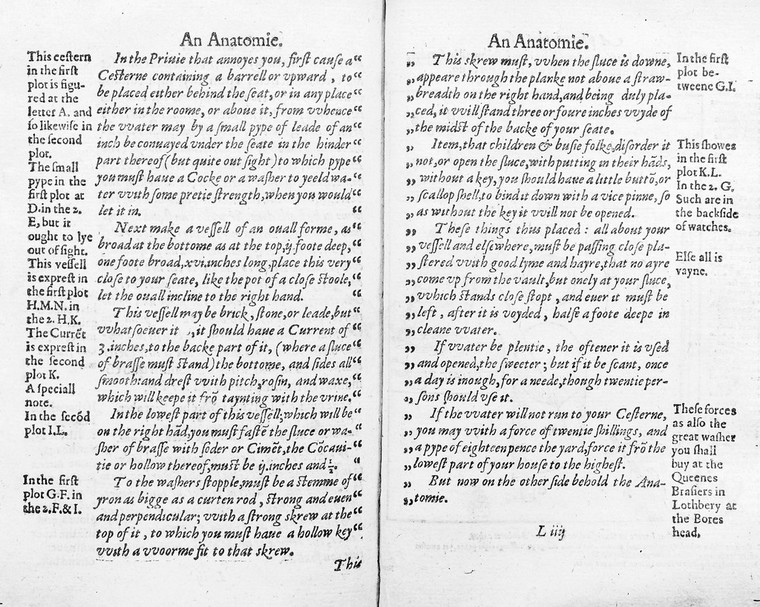 An Anatomie.
This cestern
in the first
plot is figu-
red at the
letter A. and
so likewise in
the second
plot.
The small
pype in the
first plot at
D. in the 2.
E, but it
ought to lye
out of sight.
This vessell
is exprest in
the first plot
H.M.N. in
the 2. H.K.
The Currēt
is exprest in
the second
plot K.
A speciall
note.
In the secōd
plot I.L.
In the first
plot G.F. in
the 2. F. & I.
In the Priuie that annoyes you, first cause a “
Cesterne containing a barrell or vpward, to “
be placed either behind the seat, or in any place “
either in the roome, or aboue it, from vvhence “
the vvater may by a small pype of leade of an “
inch be conuayed vnder the seate in the hinder “
part thereof (but quite out of sight) to which pype “
you must haue a Cocke or a washer to yeeld wa- “
ter vvith some pretie strength, when you would “
let it in. “
Next make a vessell of an ouall forme, as “
broad at the bottome as at the top, ij. foote deep, “
one foote broad, xvi. inches long, place this very “
close to your seate, like the pot of a close stoole, “
let the ouall incline to the right hand. “
This vessell may be brick, stone, or leade, but “
vvhatsoeuer it , it should haue a Current of “
3. inches, to the backe part of it, (where a sluce “
of brasse must stand) the bottome, and sides all “
smooth: and drest vvith pitch, rosin, and waxe, “
which will keepe it frō taynting with the vrine. “
In the lowest part of this vessell, which will be “
on the right hād, you must fastē the sluce or wa- “
sher of brasse with soder or Cimēt, the Cōcaui- “
tie or hollow thereof, must be ij. inches and ½. “
To the washers stopple, must be a stemme of “
yron as bigge as a curten rod, strong and euen “
and perpendicular; vvith a strong skrew at the “
top of it, to which you must haue a hollow key “
vvith a vvorme fit to that skrew.
This
An Anatomie.
„ This skrew must, vvhen the sluce is downe,
„ appeare through the planke not aboue a straw-
„ breadth on the right hand, and being duly pla-
„ ced, it vvill stand three or foure inches vvyde of
„ the midst of the backe of your seate.
„ Item, that children & busie folke, disorder it
„ not, or open the sluce, with putting in their hāds,
„ without a key, you should haue a little buttō, or
„ scallop shell, to bind it down with a vice pinne, so
„ as without the key it vvill not be opened.
„ These things thus placed: all about your
„ vessell and elsewhere, must be passing close pla-
„ stered vvith good lyme and hayre, that no ayre
„ come vp from the vault, but onely at your sluce,
„ vvhich stands close stopt, and euer it must be
„ left, after it is voyded, halfe a foote deepe in
„ cleane vvater.
„ If vvater be plentie, the oftener it is vsed
„ and opened, the sweeter; but if it be scant, once
„ a day is inough, for a neede, though twentie per-
„ sons should vse it.
„ If the vvater will not run to your Cesterne,
„ you may vvith a force of twentie shillings, and
„ a pype of eighteen pence the yard, force it frō the
„ lowest part of your house to the highest.
„ But now on the other side behold the Ana-
„ tomie.
L iiij
In the first
plot be-
tweene G.I.
This showes
in the first
plot K.L.
In the 2. G.
Such are in
the backside
of watches.
Else all is
vayne.
These forces
as also the
great washer
you shall
buy at the
Queenes
Brasiers in
Lothbery at
the Bores
head.